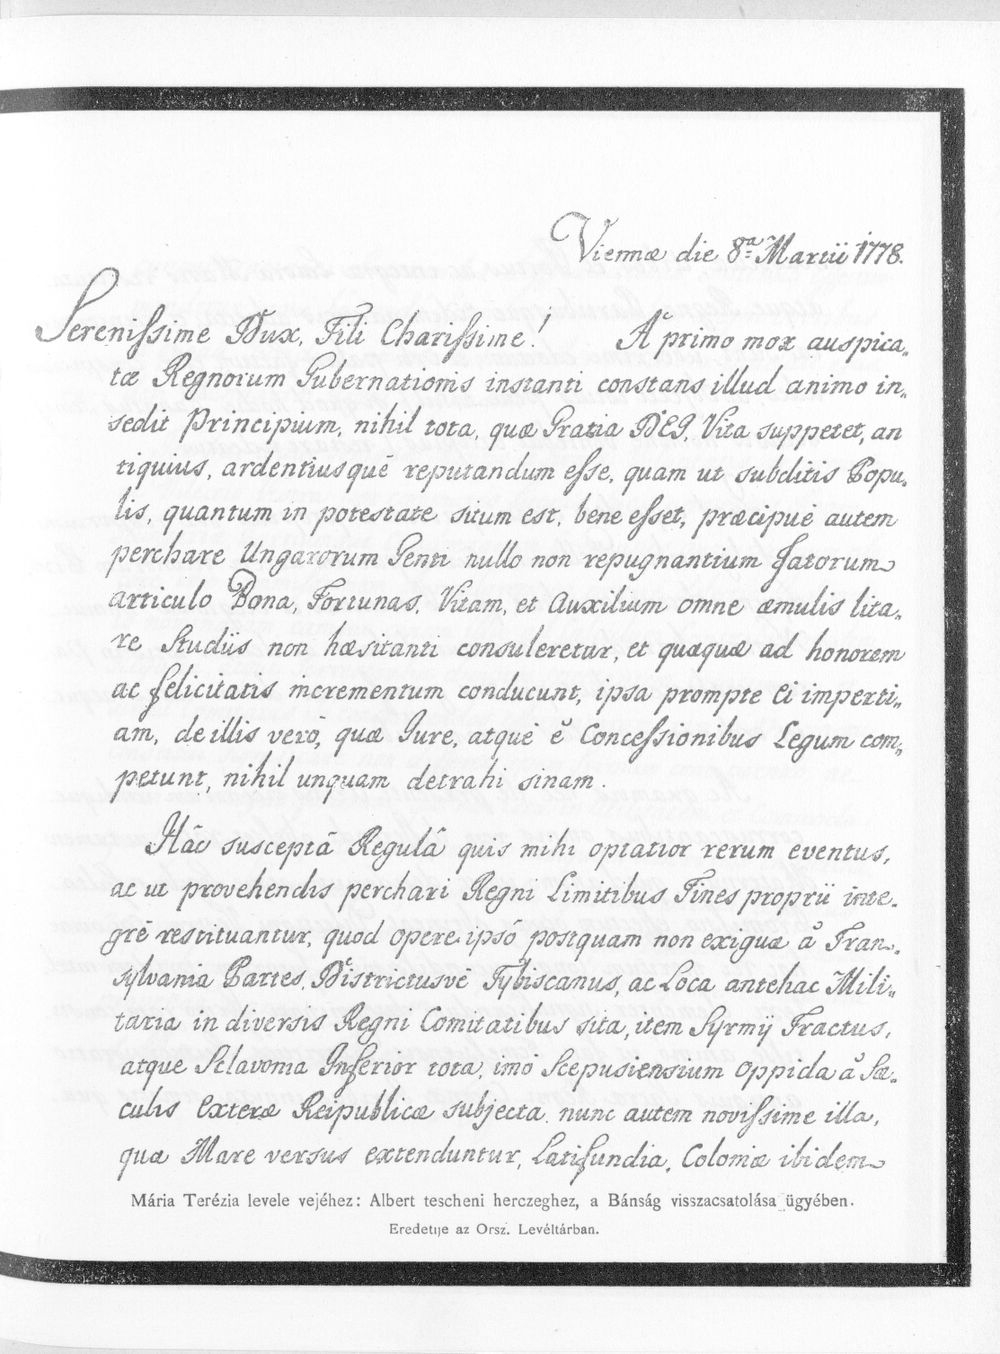 Viennæ die 8ª Martii 1778.
Serenissime Dux, Fili Charissime! A primo mox auspica„
tæ Regnorum Gubernationis instanti constans illud animo in„
sedit Principium, nihil tota, quæ Gratia DEI, Vita suppetet, an
tiquius, ardentiusquè reputandum esse, quam ut subditis Popu„
lis, quantum in potestate situm est, bene esset, præcipuè autem
perchare Ungarorum Genti nullo non repugnantium fatorum
articulo Bona, Fortunas, Vitam, et Auxilium omne æmulis lita„
re Studiis non hæsitanti consuleretur, et quæquæ ad honorem
ac felicitatis incrementum conducunt, ipsa prompte Ei imperti„
am, de illis verò, quæ Jure, atquè è Concessionibus Legum com„
petunt, nihil unquam detrahi sinam.
Hâc susceptâ Regulâ quis mihi optatior rerum eventus,
ac ut provehendis perchari Regni Limitibus Fines proprii inte„
grè restituantur, quod opere ipsô postquam non exiguæ à Tran„
sylvania Partes, Districtusvè Tÿbiscanus, ac Loca antehac Mili„
taria in diversis Regni Comitatibus sita, item Syrmÿ Tractus,
atque Sclavonia Inferior tota, imò Scepusiensium Oppida à Sæ„
culis Exteræ Reipublicæ subjecta, nunc autem novissime illa,
quæ Mare versus extenduntur, Latifundia, Coloniæ ibidem
Mária Terézia levele vejéhez: Albert tescheni herczeghez, a Bánság visszacsatolása ügyében.
Eredetije az Orsz. Levéltárban.